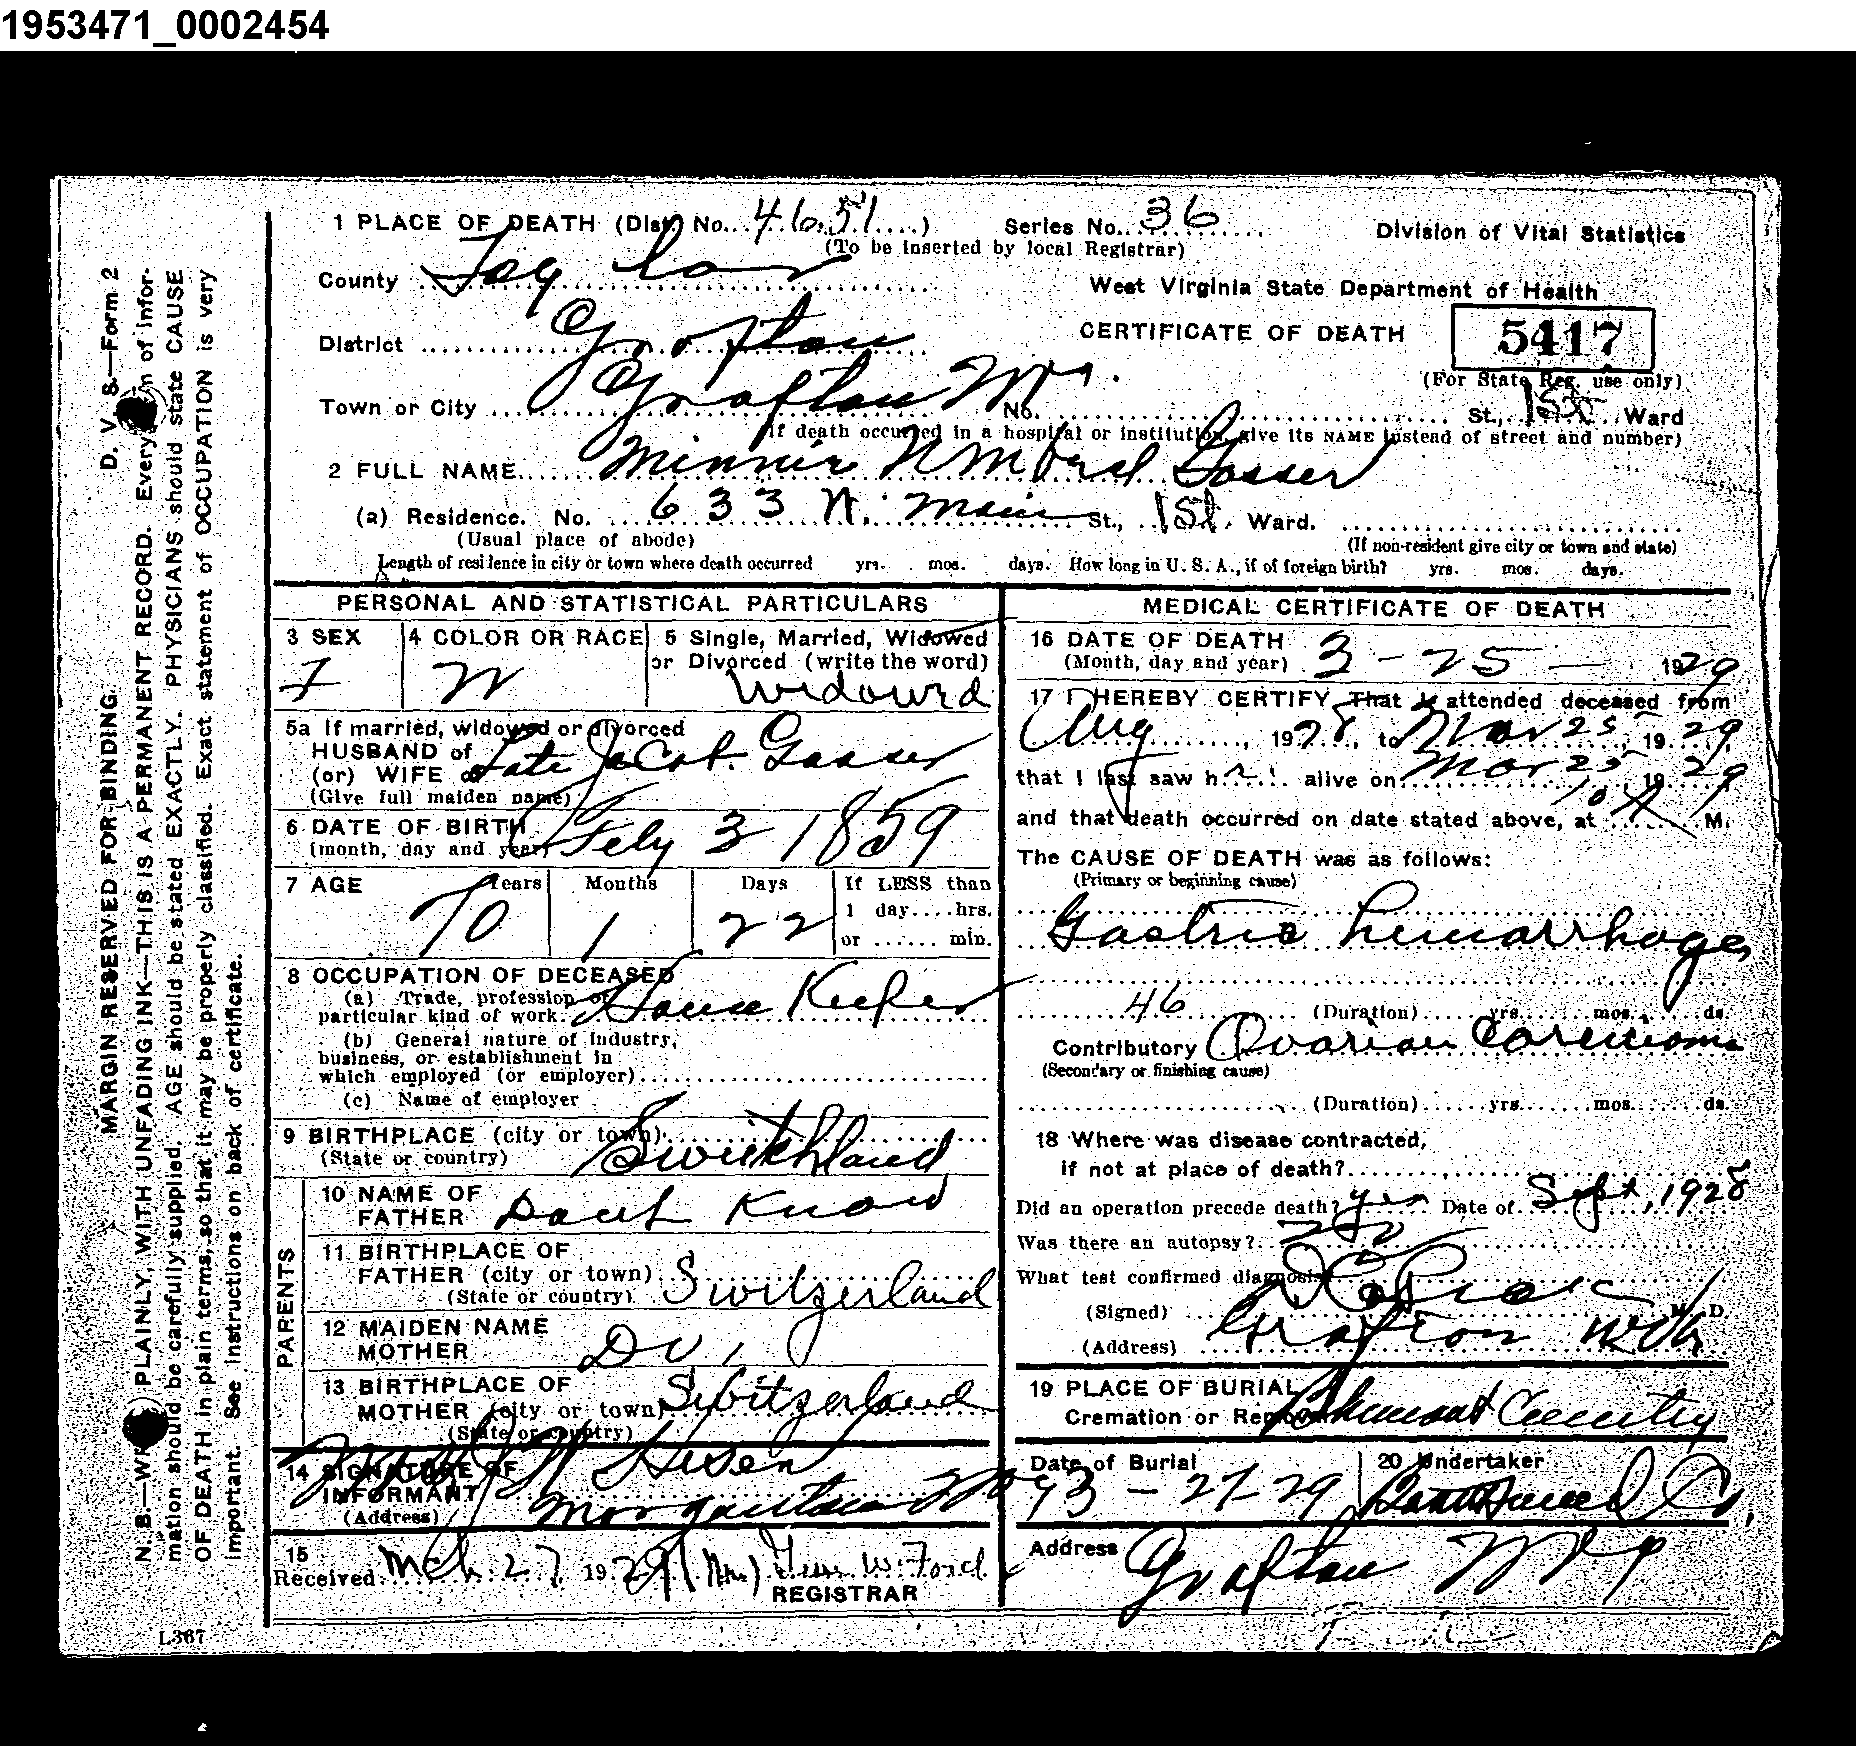 1953471_0002454
1 PLACE OF DEATH (Dist. No. 4651) Series No. 36 Division of Vital Statistics
(To be inserted by local Registrar)
County Taylor West Virginia State Department of Health
District Grafton CERTIFICATE OF DEATH 5417
(For State Reg. use only)
Town or City Grafton No. St., 1st Ward
(If death occurred in a hospital or institution, give its NAME instead of street and number)
2 FULL NAME Minnie Gasser
(a) Residence. No. 633 W. Main St., 1st. Ward.
(Usual place of abode) (If non-resident give city or town and state)
Length of residence in city or town where death occurred yrs. mos. days. How long in U. S. A., if of foreign birth? yrs. mos. days.
PERSONAL AND STATISTICAL PARTICULARS
3 SEX 4 COLOR OR RACE 5 Single, Married, Widowed
or Divorced (write the word)
F W Widowed
5a If married, widowed or divorced
HUSBAND of
(or) WIFE of Late Jacob Gasser
(Give full maiden name)
6 DATE OF BIRTH
(month, day and year) Feby 3 1859
7 AGE Years Months Days If LESS than
1 day....hrs.
70 1 22 or ...... min.
8 OCCUPATION OF DECEASED
(a) Trade, profession or
particular kind of work. House Keeper
(b) General nature of Industry,
business, or establishment in
which employed (or employer)
(c) Name of employer
9 BIRTHPLACE (city or town)
(State or country)
PARENTS
10 NAME OF
FATHER Dont Know
11 BIRTHPLACE OF
FATHER (city or town) Switzerland
(State or country)
12 MAIDEN NAME
MOTHER Do,
13 BIRTHPLACE OF
MOTHER (city or town) Switzerland
(State or country)
14 SIGNATURE OF
INFORMANT
(Address) Morgantown
15
Received Mch 27 1929 (Mrs) W. Ford
REGISTRAR
MEDICAL CERTIFICATE OF DEATH
16 DATE OF DEATH
(Month, day and year) 3-25-1929
17 I HEREBY CERTIFY That I attended deceased from
Aug, 1928, to Mar 25, 1929,
that I last saw h alive on Mar 25 1929
and that death occurred on date stated above, at 10 M.
The CAUSE OF DEATH was as follows:
(Primary or beginning cause)
Gastric hemarrhage
46 (Duration) yrs. mos. ds.
Contributory Ovarian Carcinoma
(Secondary or finishing cause)
(Duration) yrs. mos. ds.
18 Where was disease contracted,
if not at place of death?
Did an operation precede death? yes Date of Sept, 1928
Was there an autopsy? no
What test confirmed diagnosis
(Signed) M. D.
(Address) Grafton W Va
19 PLACE OF BURIAL
Cremation or Removal Bluemont Cemetry
Date of Burial 20 Undertaker
3-27-29 Co,
Address Grafton
D. V. S.—Form 2
MARGIN RESERVED FOR BINDING
N. B.—WRITE PLAINLY, WITH UNFADING INK—THIS IS A PERMANENT RECORD. Every item of infor-
mation should be carefully supplied. AGE should be stated EXACTLY. PHYSICIANS should state CAUSE
OF DEATH in plain terms, so that it may be properly classified. Exact statement of OCCUPATION is very
important. See instructions on back of certificate.
L367